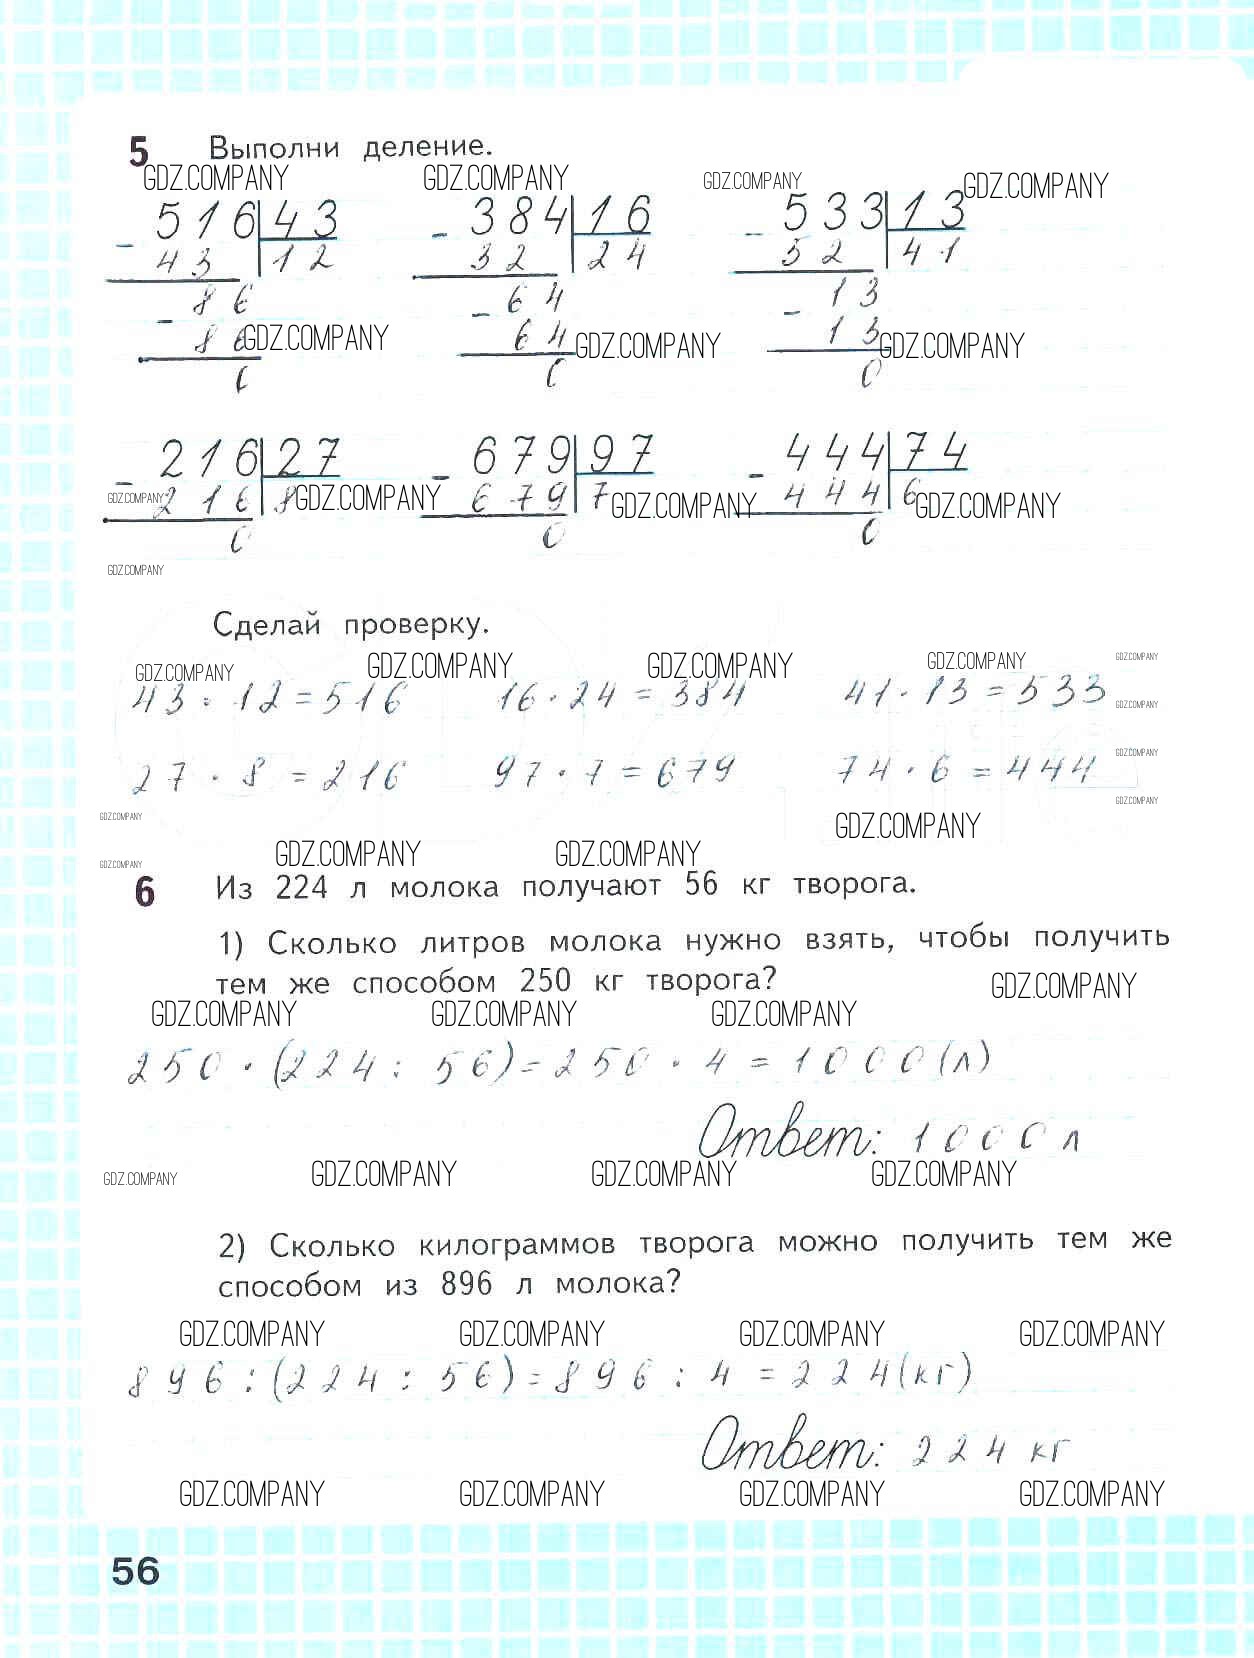 5 Выполни деление.
GDZ.COMPANY GDZ.COMPANY GDZ.COMPANY GDZ.COMPANY
- 516 43 - 384 16 - 533 13
43 12 32 24 52 41
- 86 - 64 - 13
86 GDZ.COMPANY 64 GDZ.COMPANY 13 GDZ.COMPANY
0 0 0
- 216 27 - 679 97 - 444 74
GDZ.COMPANY 216 8 GDZ.COMPANY 679 7 GDZ.COMPANY 444 6 GDZ.COMPANY
0 0 0
GDZ.COMPANY
Сделай проверку.
GDZ.COMPANY GDZ.COMPANY GDZ.COMPANY GDZ.COMPANY GDZ.COMPANY
43 · 12 = 516 16 · 24 = 384 41 · 13 = 533 GDZ.COMPANY
27 · 8 = 216 97 · 7 = 679 74 · 6 = 444 GDZ.COMPANY
GDZ.COMPANY GDZ.COMPANY GDZ.COMPANY
GDZ.COMPANY GDZ.COMPANY GDZ.COMPANY
6 Из 224 л молока получают 56 кг творога.
1) Сколько литров молока нужно взять, чтобы получить
тем же способом 250 кг творога? GDZ.COMPANY
GDZ.COMPANY GDZ.COMPANY GDZ.COMPANY
250 · (224 : 56) = 250 · 4 = 1000 (л)
Ответ: 1000 л
GDZ.COMPANY GDZ.COMPANY GDZ.COMPANY GDZ.COMPANY
2) Сколько килограммов творога можно получить тем же
способом из 896 л молока?
GDZ.COMPANY GDZ.COMPANY GDZ.COMPANY GDZ.COMPANY
896 : (224 : 56) = 896 : 4 = 224 (кг)
Ответ: 224 кг
GDZ.COMPANY GDZ.COMPANY GDZ.COMPANY GDZ.COMPANY
56